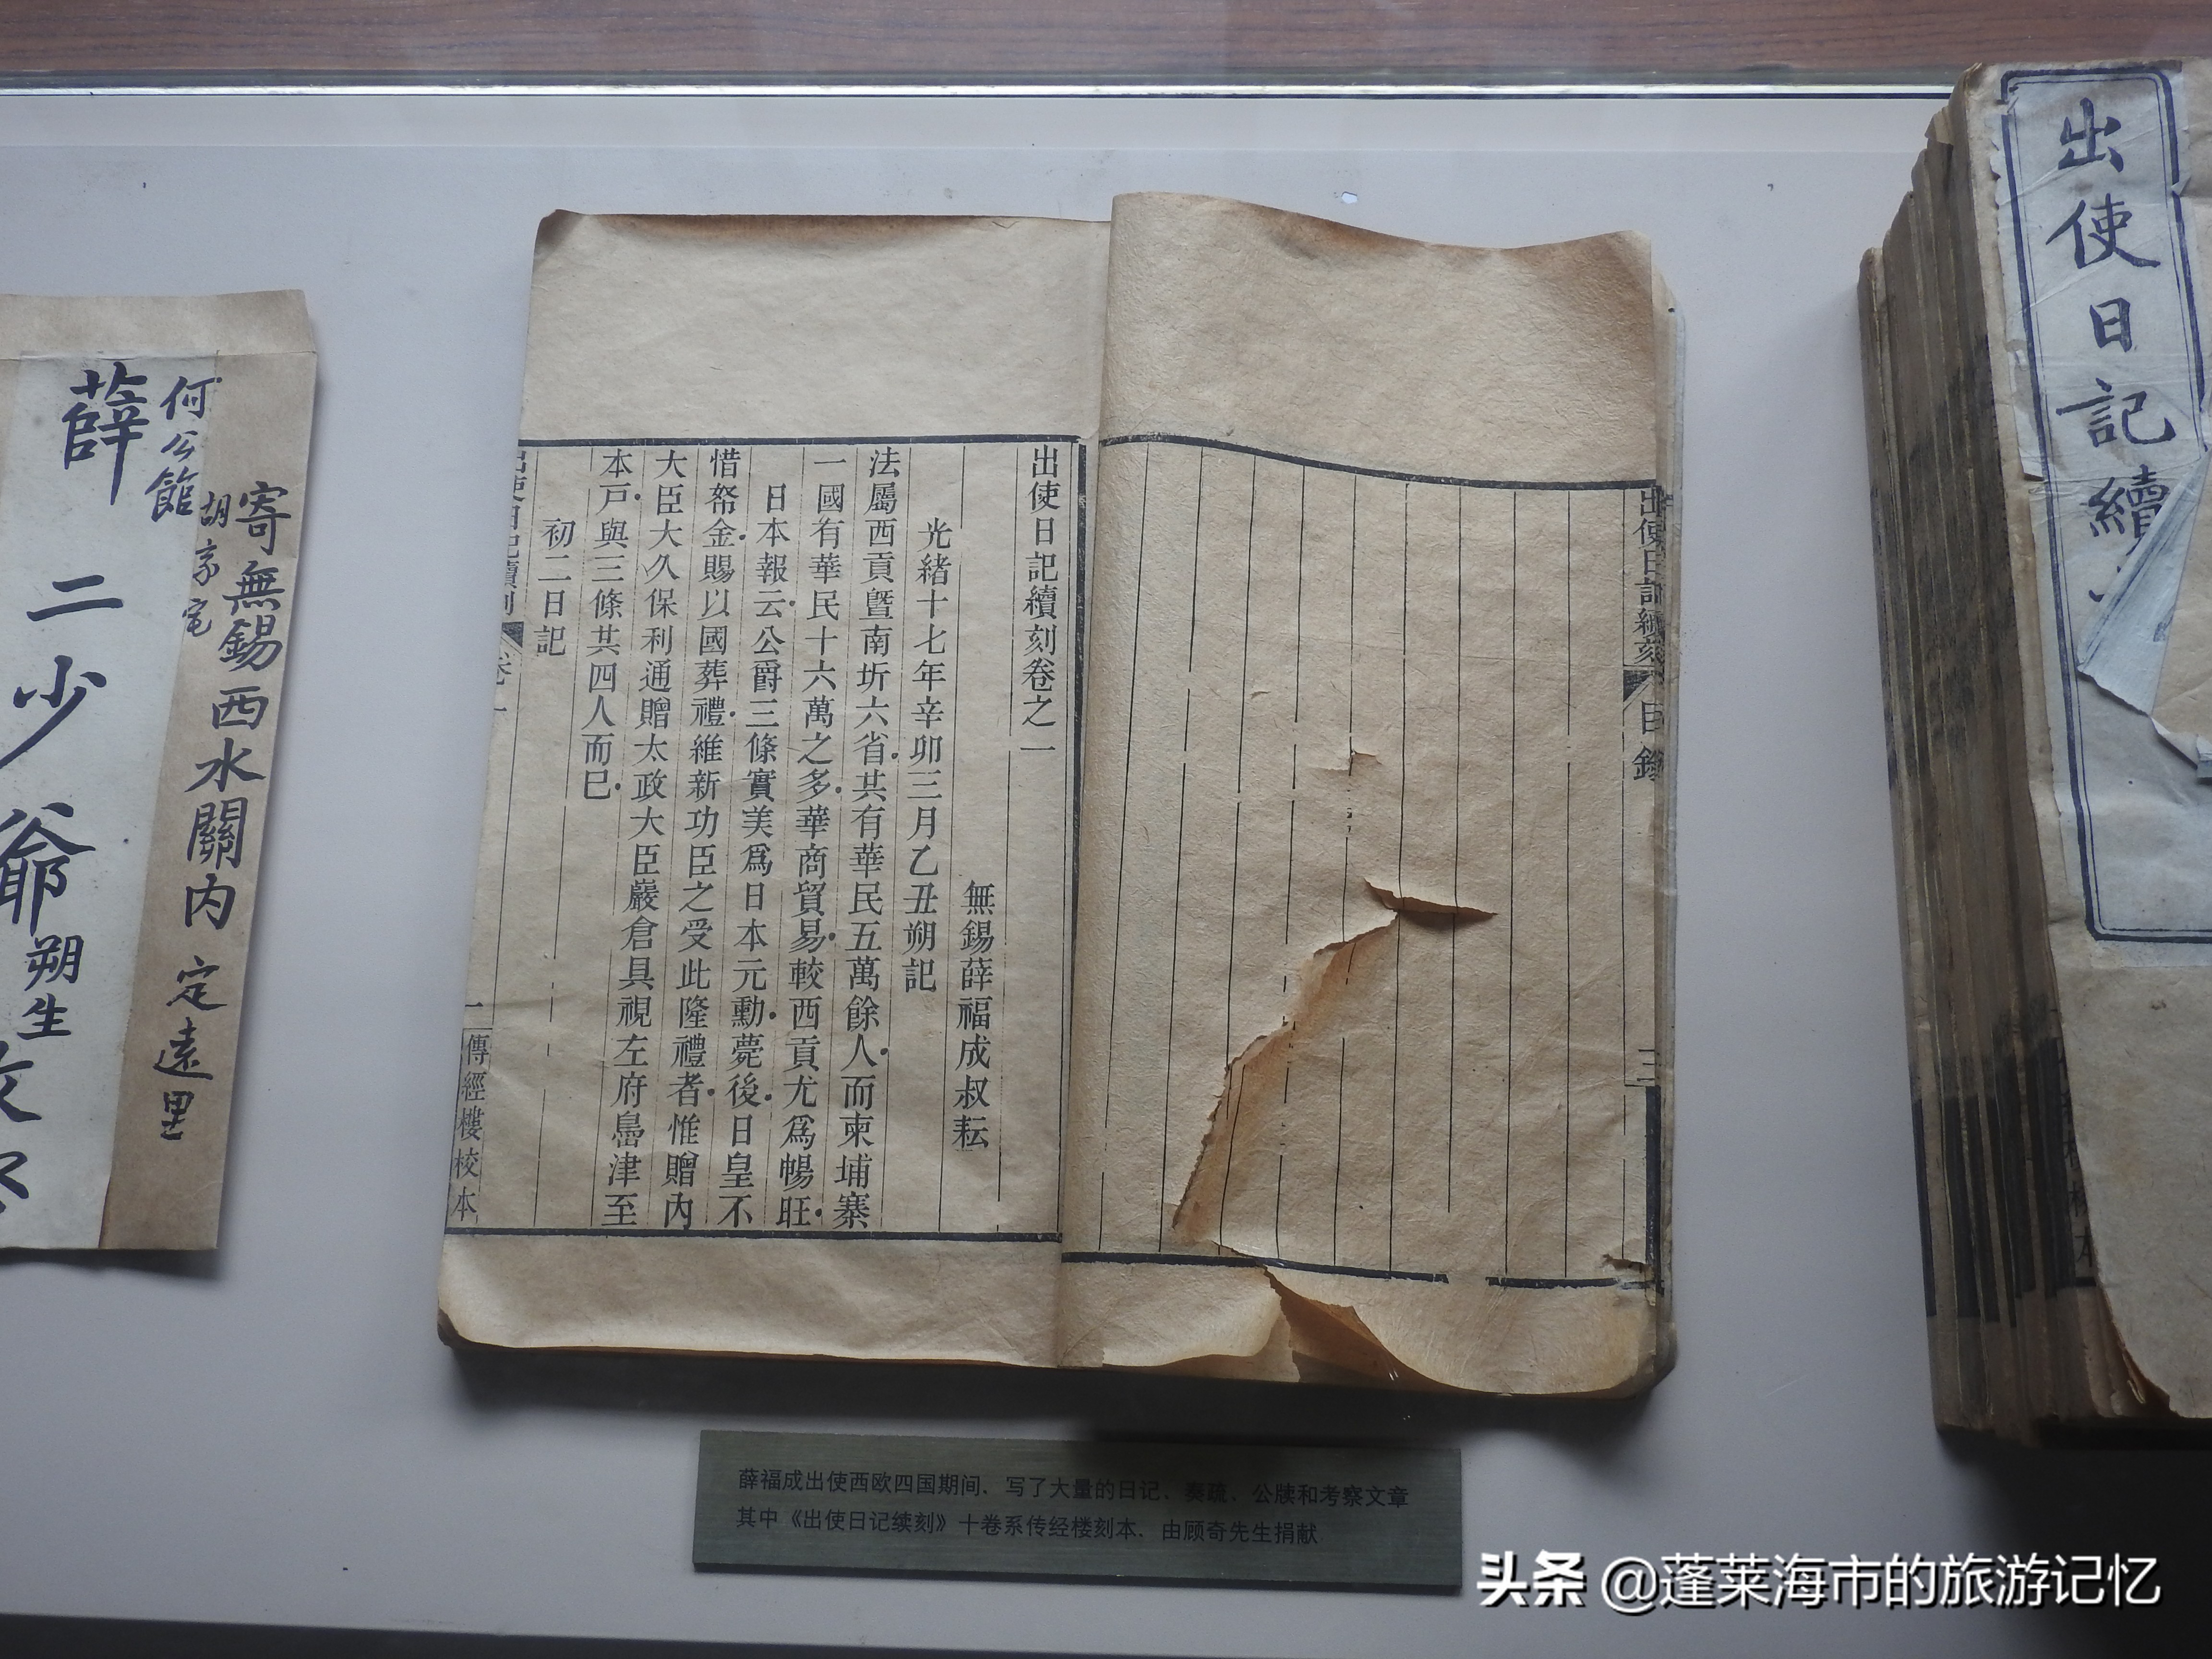 出使日記續
出使日記續刻
目錄
三
出使日記續刻卷之一
無錫薛福成叔耘
光緒十七年辛卯三月乙丑朔記
法屬西貢暨南圻六省共有華民五萬餘人而柬埔寨
一國有華民十六萬之多華商貿易較西貢尤爲暢旺
日本報云公爵三條實美爲日本元勳薨後日皇不
惜帑金賜以國葬禮維新功臣之受此隆禮者惟贈內
大臣大久保利通贈太政大臣巖倉具視左府島津至
本戸與三條共四人而巳
初二日記
出使日記續刻
卷一
一
傳經樓校本
寄無錫西水關內定遠里
胡宅
何公館
薛二少爺朔生
薛福成出使西欧四国期间、写了大量的日记、奏疏、公牍和考察文章
其中《出使日记续刻》十卷系传经楼刻本，由顾奇先生捐献
头条 @蓬莱海市的旅游记忆